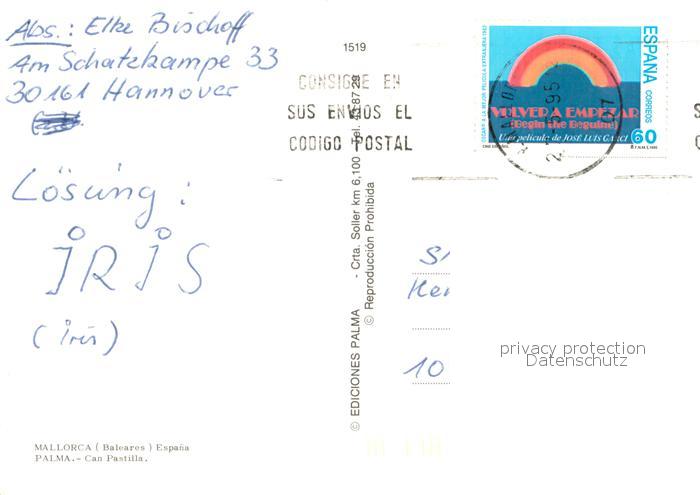 Abs.: Elke Bischoff
Am Schatzkampe 33
30161 Hannover
Lösung:
IRIS
(Iris)
MALLORCA (Baleares) España
PALMA.- Can Pastilla.
1519
© EDICIONES PALMA - Crta. Soller km 6,100
© Reproducción Prohibida
CONSIGNE EN
SUS ENVIOS EL
CODIGO POSTAL
OSCAR A LA MEJOR PELICULA EXTRANJERA 1982
VOLVER A EMPEZAR
(Begin the Beguine)
Una película de JOSÉ LUIS GARCI
CINE ESPAÑOL
60
ESPAÑA
CORREOS
10
privacy protection
Datenschutz